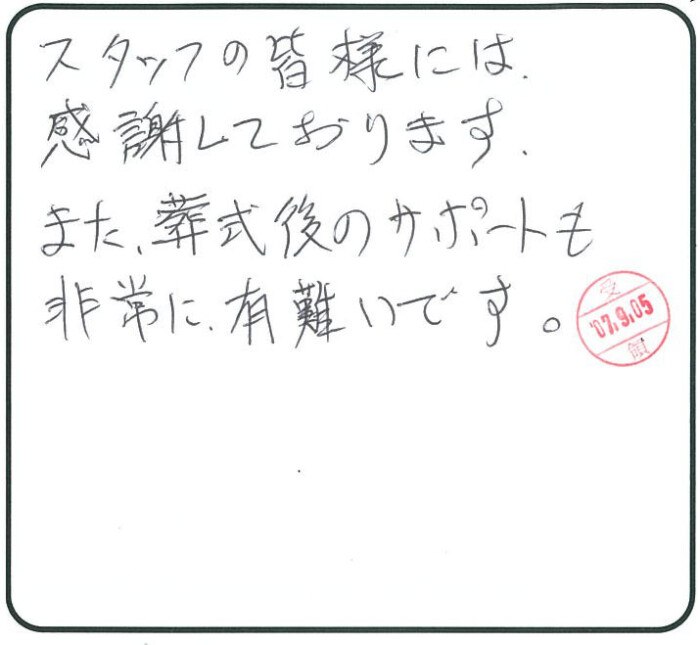 スタッフの皆様には、
感謝しております、
また、葬式後のサポートも
非常に、有難いです。
受
'07.9.05